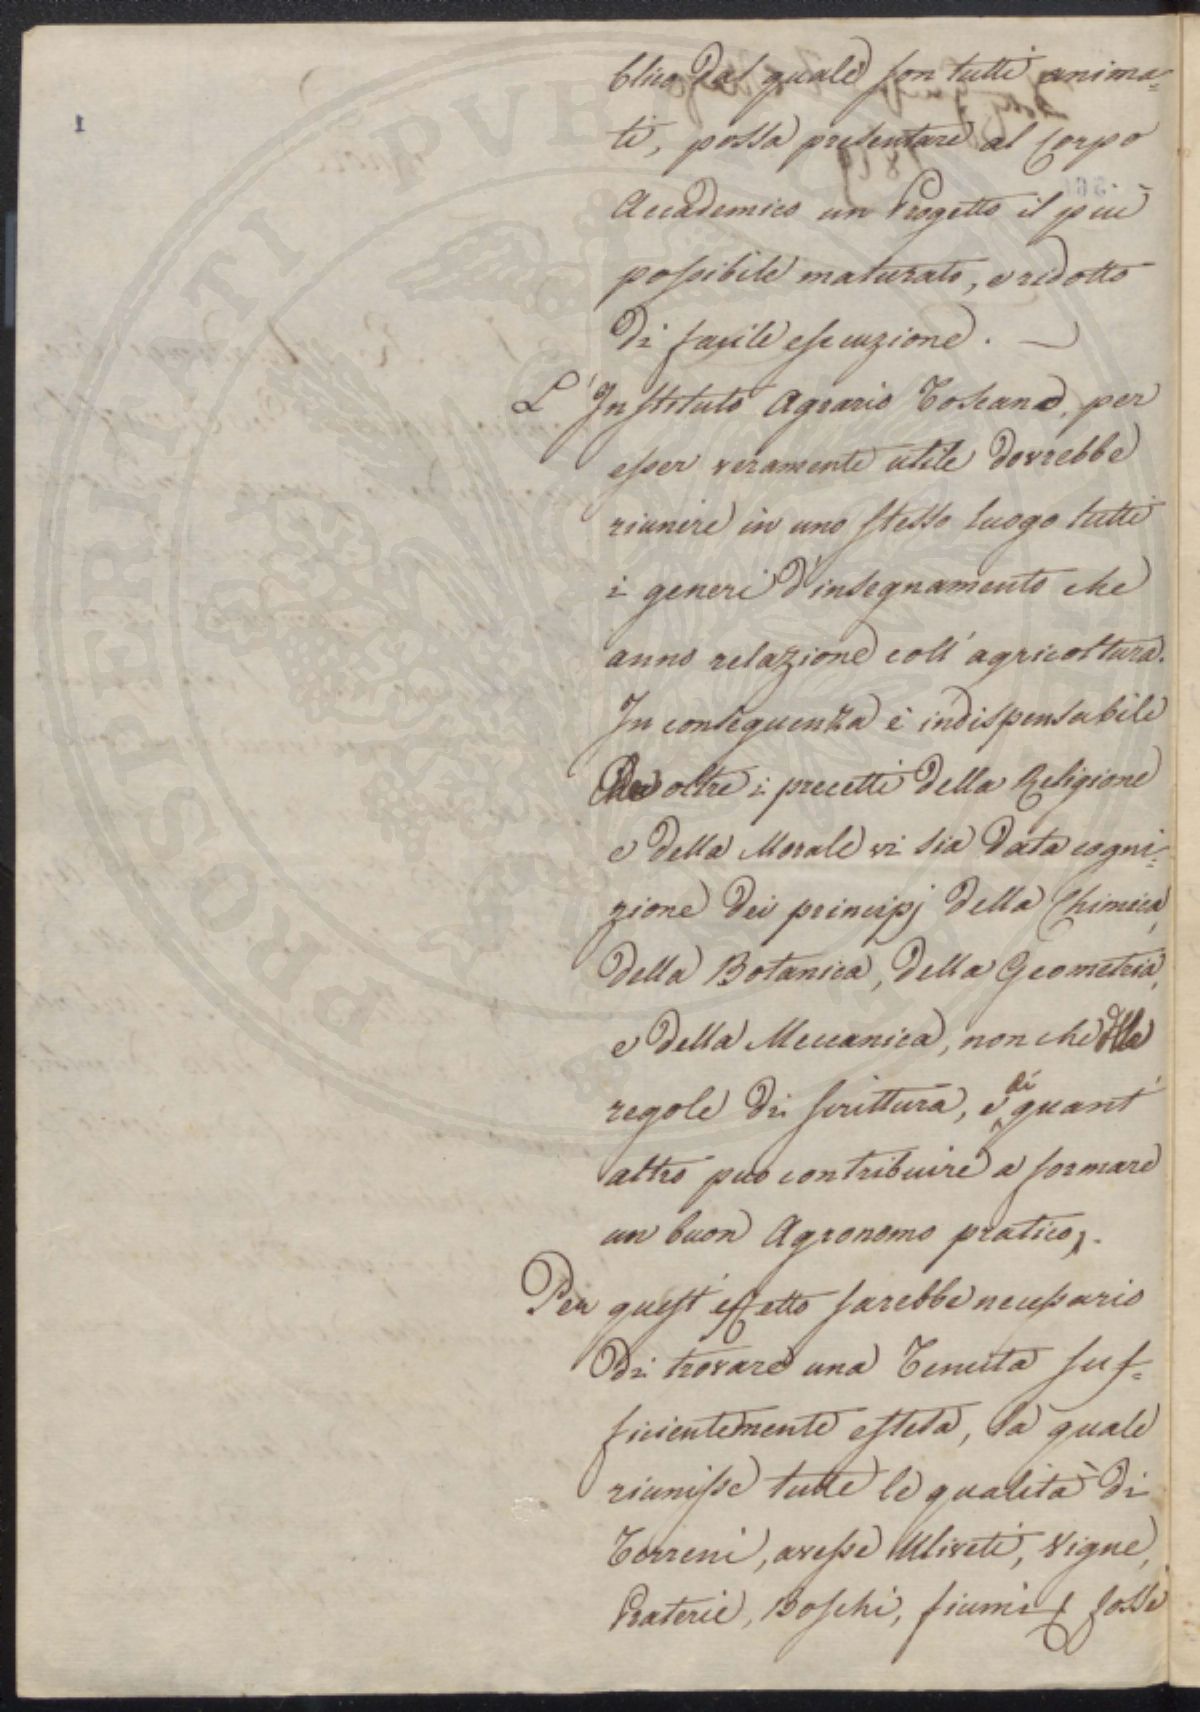 blico dal quale son tutti anima=
ti, possa presentare al Corpo
Accademico un Progetto il più
possibile maturato, e ridotto
di facile esecuzione.
L'Instituto Agrario Toscano, per
esser veramente utile dovrebbe
riunire in uno stesso luogo tutti
i generi d'insegnamento che
anno relazione coll'agricoltura.
In conseguenza è indispensabile
Che oltre i precetti della Religione
e della Morale vi sia data cogni=
zione dei principj della Chimica,
della Botanica, della Geometria,
e della Meccanica, non che delle
regole di scrittura, e di quant'
altro può contribuire a formare
un buon Agronomo pratico.
Per quest'effetto sarebbe necessario
di trovare una Tenuta suf=
ficientemente estesa, la quale
riunisse tutte le qualità di
Terreni, avesse Uliveti, Vigne,
Praterie, Boschi, fiumi e fosse
1
PROSPERITATI PUBLICAE